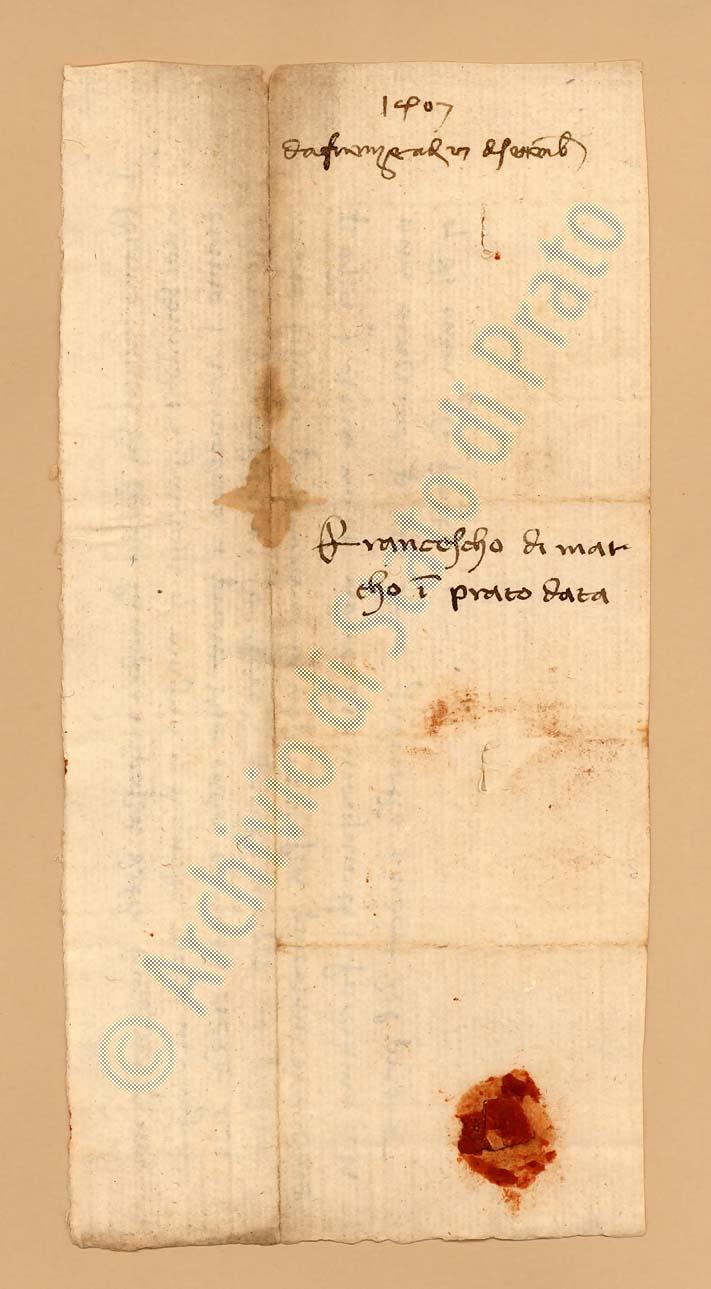 1407
da firenze a dì 17 di settenb
Francescho di mar
cho ī prato data
© Archivio di Stato di Prato